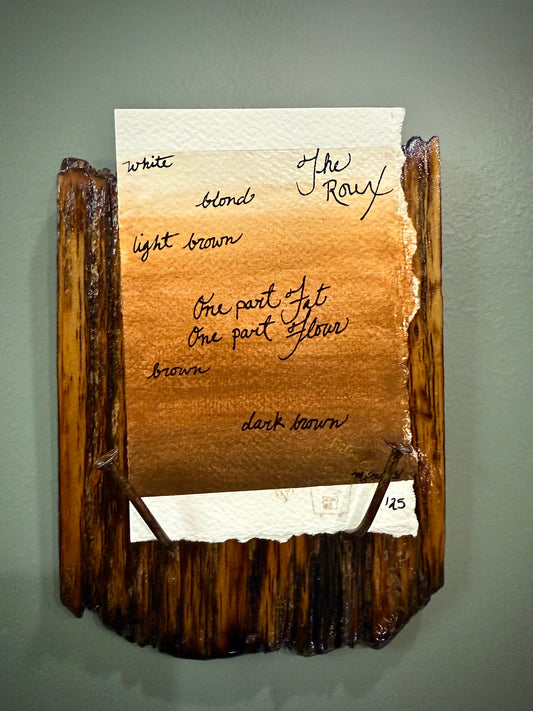 white
The
Roux
blond
light brown
One part Fat
One part Flour
brown
dark brown
'25